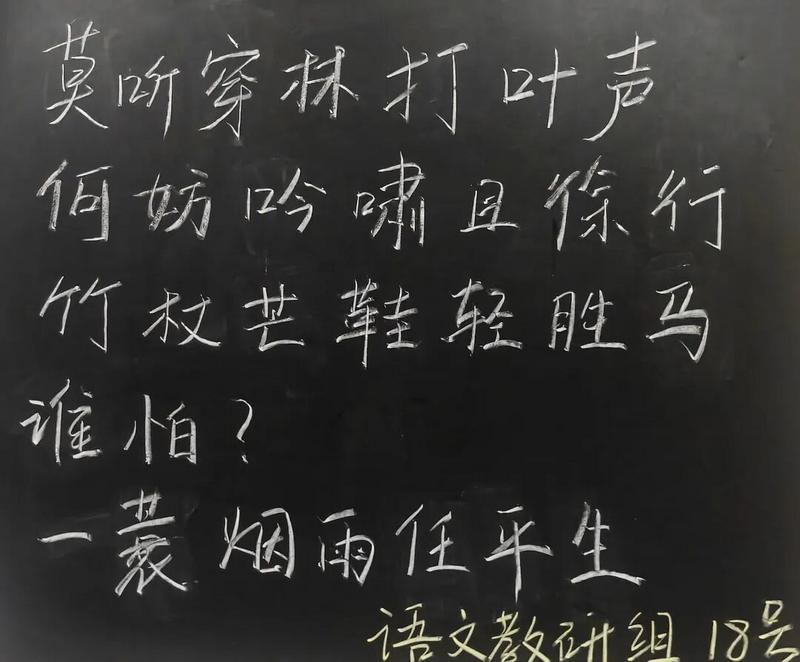 莫听穿林打叶声
何妨吟啸且徐行
竹杖芒鞋轻胜马
谁怕？
一蓑烟雨任平生
语文教研组 18号